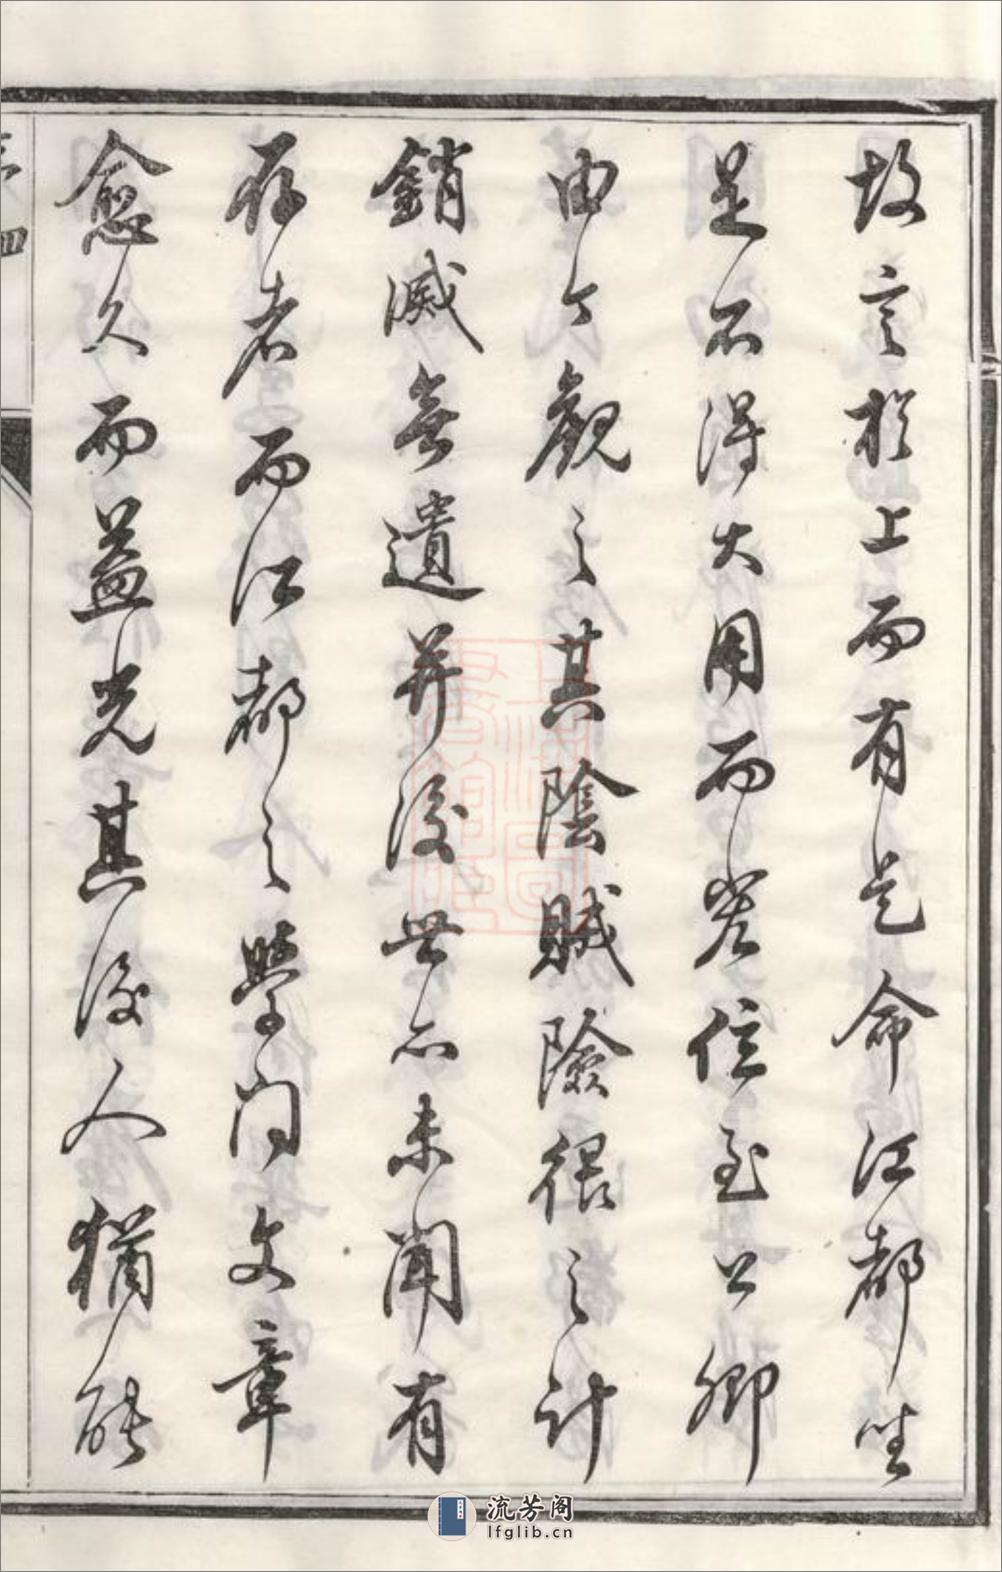 故言於上而有是命江都坐
是不得大用而卒位至公卿
由今觀之其陰賊險很之計
銷滅無遺并後世亦未聞有
存者而江都之學問文章
愈久而益光其後人猶能
流芳阁
lfglib.cn